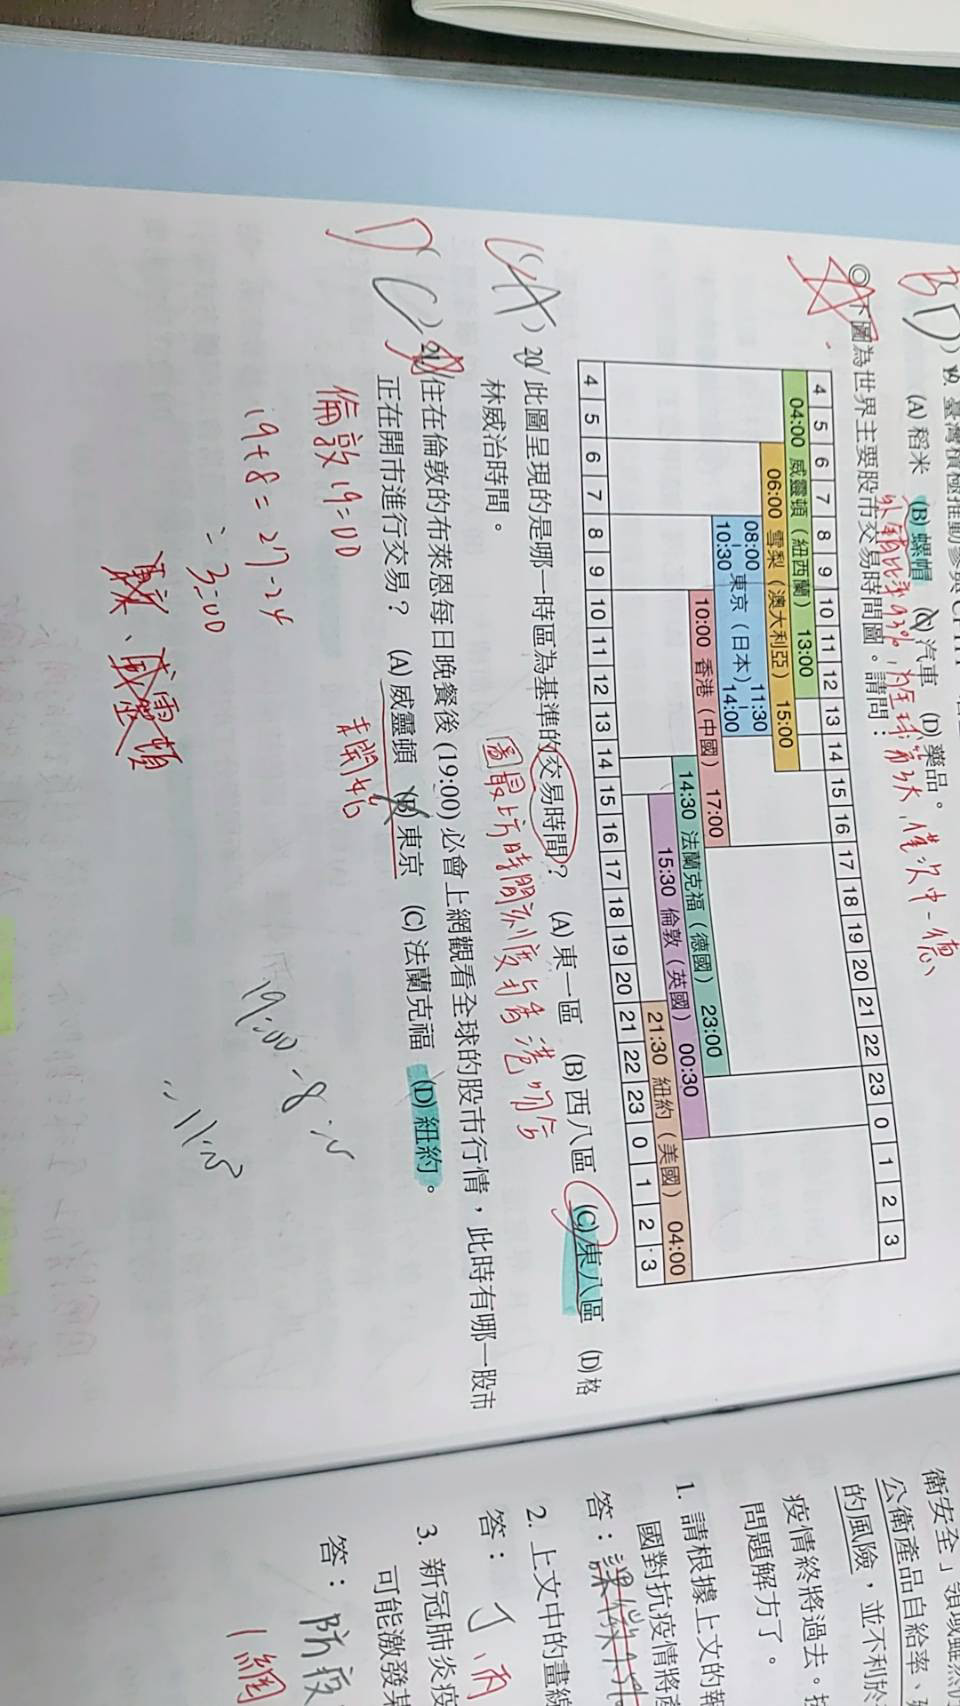 BD) 19. 臺灣積極推動參與CPTPP
(A)稻米 (B)螺帽 (C)汽車 (D)藥品。
外銷比率92%，為全球第3大，僅次中、德
◎下圖為世界主要股市交易時間圖。請問：
4 5 6 7 8 9 10 11 12 13 14 15 16 17 18 19 20 21 22 23 0 1 2 3
04:00 威靈頓（紐西蘭） 13:00
06:00 雪梨（澳大利亞） 15:00
08:00 | 10:30 東京（日本） 11:30 | 14:00
10:00 香港（中國） 17:00
14:30 法蘭克福（德國） 23:00
15:30 倫敦（英國） 00:30
21:30 紐約（美國） 04:00
4 5 6 7 8 9 10 11 12 13 14 15 16 17 18 19 20 21 22 23 0 1 2 3
(CA) 20. 此圖呈現的是哪一時區為基準的交易時間？ (A)東一區 (B)西八區 (C)東八區 (D)格
林威治時間。
D(C) 21. 住在倫敦的布萊恩每日晚餐後(19:00)必會上網觀看全球的股市行情，此時有哪一股市
正在開市進行交易？ (A)威靈頓 (B)東京 (C)法蘭克福 (D)紐約。
倫敦19:00
19+8=27-24
=3:00
、威靈頓
19:00-8
=11:00
衛安全」領域雖然
公衛產品自給率、
的風險，並不利於
疫情終將過去。
問題解方了。
1. 請根據上文的
國對抗疫情將
答：
2. 上文中的畫線
答：丁、丙
3. 新冠肺炎疫
可能激發某
答：防疫